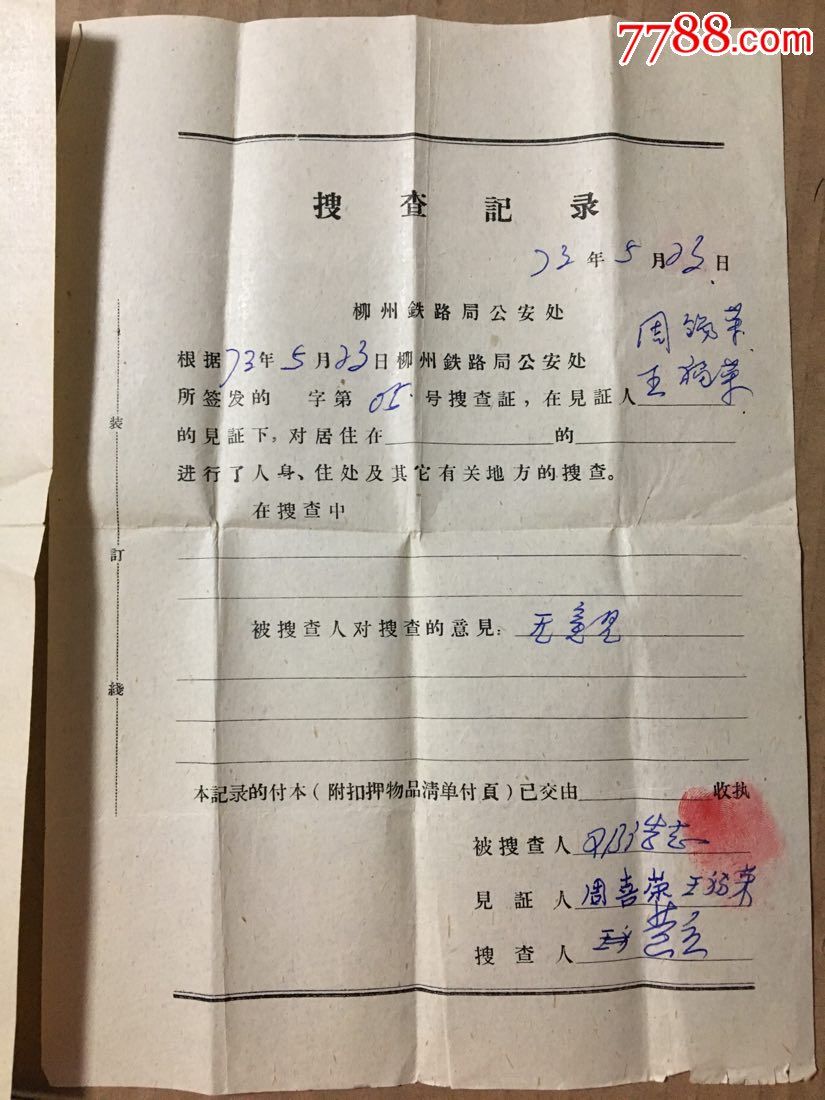 7788.com
搜查記录
73年5月23日
柳州鉄路局公安处
根据73年5月23日柳州鉄路局公安处
周锡荣
王福荣
所签发的 字第05号搜查証，在見証人
的見証下，对居住在 的
进行了人身、住处及其它有关地方的搜查。
在搜查中
被搜查人对搜查的意見：无意见
本記录的付本（附扣押物品清单付頁）已交由 收执
被搜查人
見証人 周喜荣 王福荣
搜查人
装訂綫